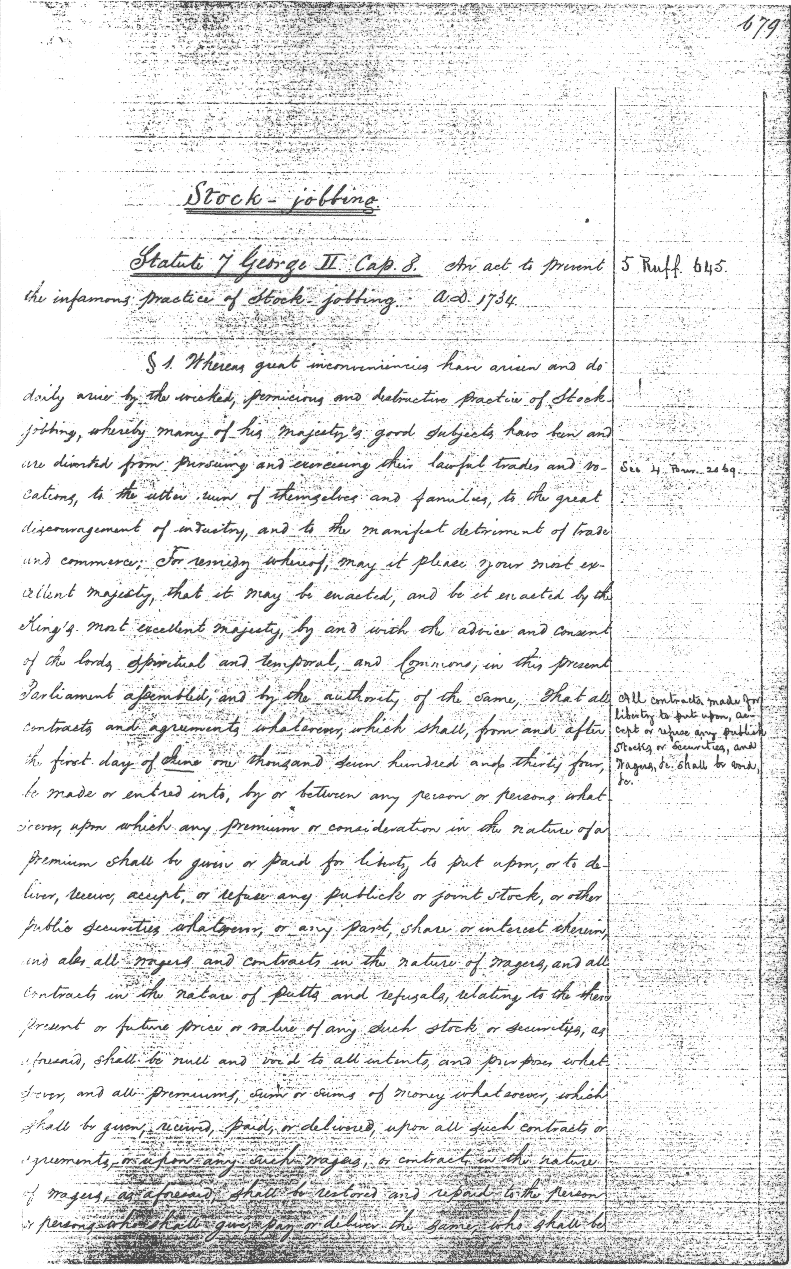 679
Stock-jobbing.
Statute 7 George II. Cap. 8. An act to prevent
the infamous practice of Stock-jobbing. A.D. 1734.
5 Ruff. 645.
§ 1. Whereas great inconveniencies have arisen and do
daily arise by the wicked, pernicious and destructive practice of Stock-
jobbing, whereby many of his majesty's good subjects have been and
are diverted from pursuing and exercising their lawful trades and vo-
cations, to the utter ruin of themselves and families, to the great
discouragement of industry, and to the manifest detriment of trade
and commerce; For remedy whereof, may it please your most ex-
cellent majesty, that it may be enacted, and be it enacted by the
King's most excellent majesty, by and with the advice and consent
of the lords spiritual and temporal, and Commons, in this present
Parliament assembled, and by the authority of the same, That all
contracts and agreements whatsoever, which shall, from and after
the first day of June one thousand seven hundred and thirty four,
be made or entred into, by or between any person or persons what-
soever, upon which any premium or consideration in the nature of a
premium shall be given or paid for liberty to put upon, or to de-
liver, receive, accept, or refuse any publick or joint stock, or other
public securities whatsoever, or any part, share or interest therein,
and also all wagers and contracts in the nature of wagers, and all
contracts in the nature of putts and refusals, relating to the then
present or future price or value of any such stock or securities, as
aforesaid, shall be null and void to all intents, and purposes what-
soever, and all premiums, sum or sums of money whatsoever, which
shall be given, received, paid, or delivered, upon all such contracts or
agreements, or upon any such wagers, or contracts in the nature
of wagers, as aforesaid, shall be restored and repaid to the person
or persons who shall give, pay or deliver the same, who shall be
See 4 Bur. 2069.
All contracts made for
liberty to put upon, ac-
cept or refuse any publick
Stocks or securities, and
Wagers, &c. shall be void,
&c.